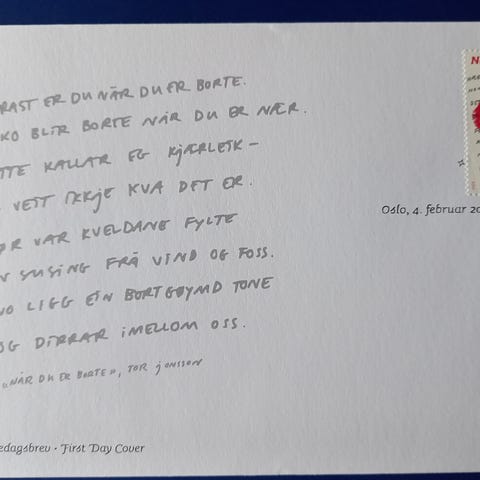 RAST ER DU NÅR DU ER BORTE.
KO BLIR BORTE NÅR DU ER NÆR.
TTE KALLAR EG KJÆRLEIK –
VEIT IKKJE KVA DET ER.
ØR VAR KVELDANE FYLTE
V SUSING FRÅ VIND OG FOSS.
NO LIGG EIN BORTGØYMD TONE
OG DIRRAR IMELLOM OSS.
«NÅR DU ER BORTE», TOR JONSSON
Oslo, 4. februar 20
edagsbrev · First Day Cover